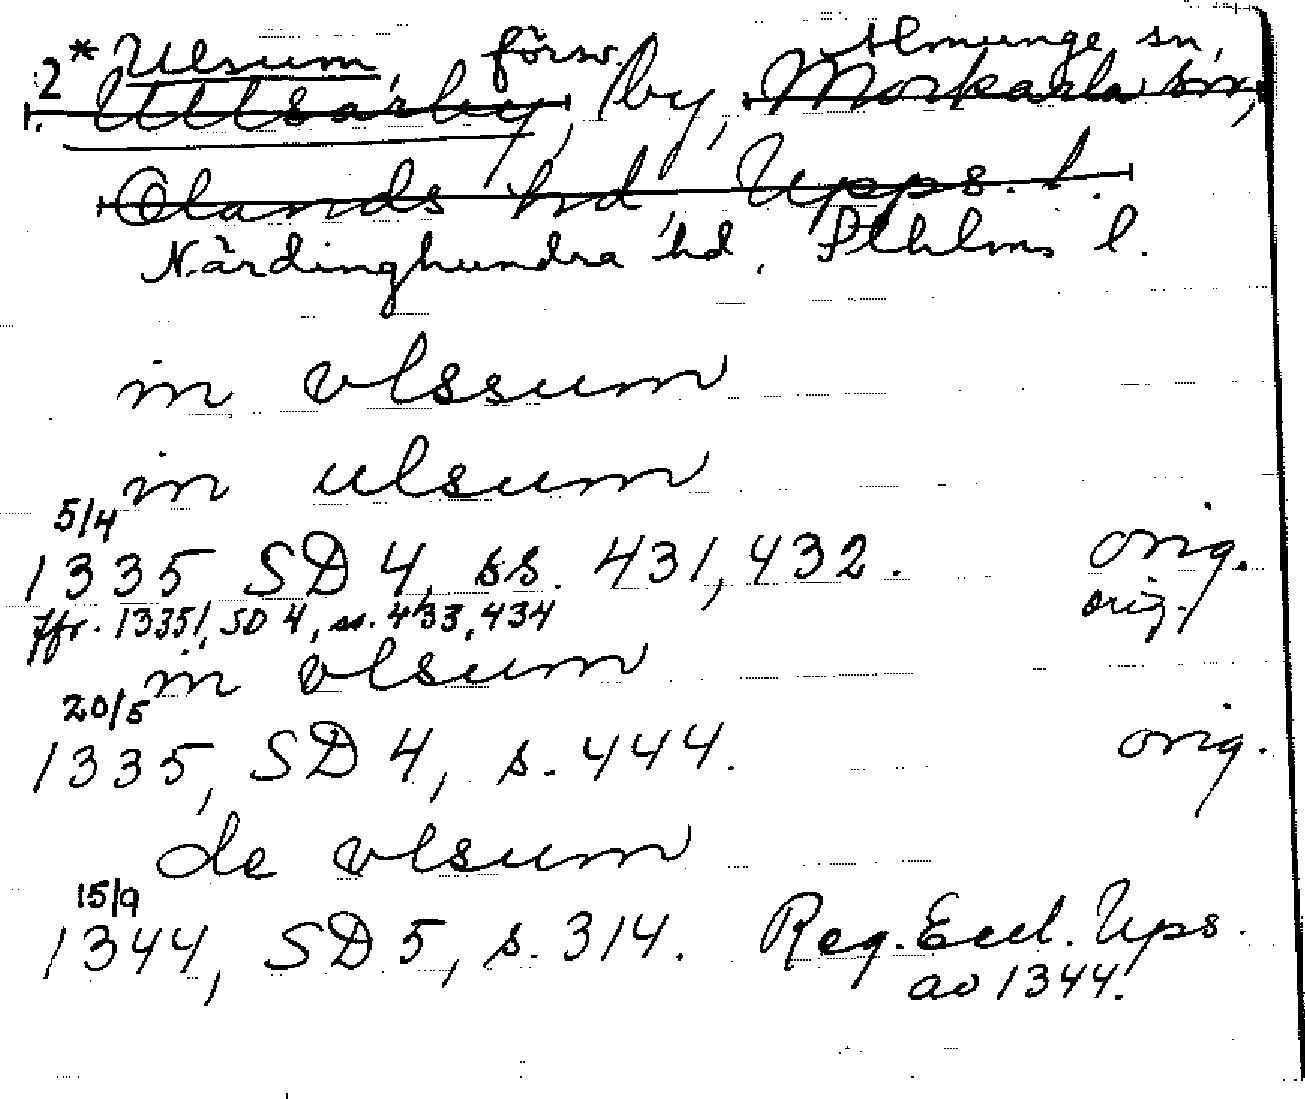 2 * Ulsum, försv. Almunge sn,
Ullsärby, by, Morkarla sn,
Olands hd Upps. l.
Närdinghundra hd, Sthlms l.
in vlssum
in ulsum
5/4
1335 SD 4, ss. 431, 432. orig.
Jfr. 1335!, SD 4, ss. 433, 434 orig.
in vlsum
20/5
1335, SD 4, s. 444. orig.
de vlsum
15/9
1344, SD 5, s. 314. Reg. Eccl. Ups.
av 1344.